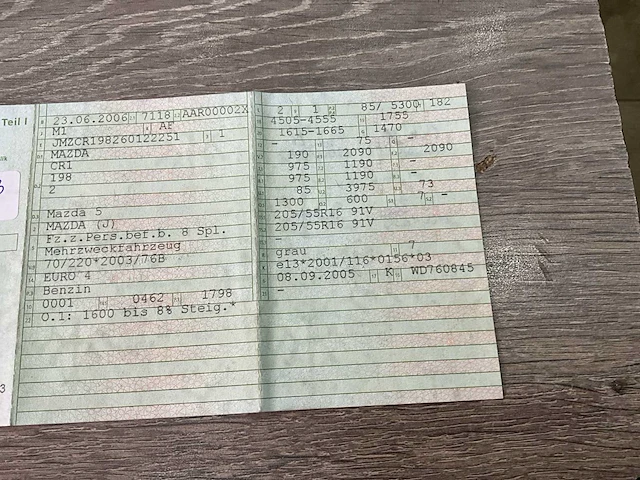 Teil I
23.06.2006 7118 AAR00002X
M1 AF
JMZCR198260122251 1
MAZDA
CR1
198
2
Mazda 5
MAZDA (J)
Fz.z.Pers.bef.b. 8 Spl.
Mehrzweckfahrzeug
70/220*2003/76B
EURO 4
Benzin
0001 0462 1798
O.1: 1600 bis 8% Steig.*
2 1 85/ 5300 182
4505-4555 1755
1615-1665 1470
- 75 -
190 2090 2090
975 1190 -
975 1190 -
85 3975 73
1300 600 7 -
205/55R16 91V
205/55R16 91V
-
grau 7
e13*2001/116*0156*03
08.09.2005 K WD760845
-
3